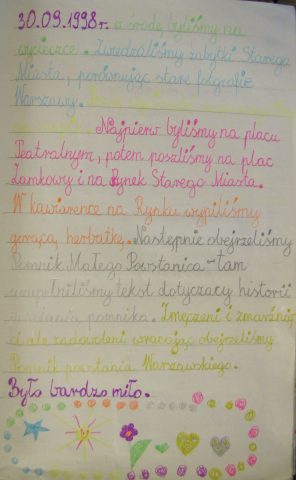 30.09.1998 r. w środę byliśmy na
wycieczce. Zwiedzaliśmy zabytki Starego
Miasta, porównując stare fotgrafie
Warszawy.
Najpierw byliśmy na placu
Teatralnym, potem poszliśmy na plac
Zamkowy i na Rynek Starego Miasta.
W kawiarence na Rynku wypiliśmy
gorącą herbatkę. Następnie obejrzeliśmy
Pomnik Małego Powstańca - tam
uzupełniliśmy tekst dotyczacy historii
pomnika. Zmęczeni i zmarznię
ci ale zadowoleni wracając obejrzeliśmy
Pomnik powstania Warszawskiego.
Było bardzo miło.